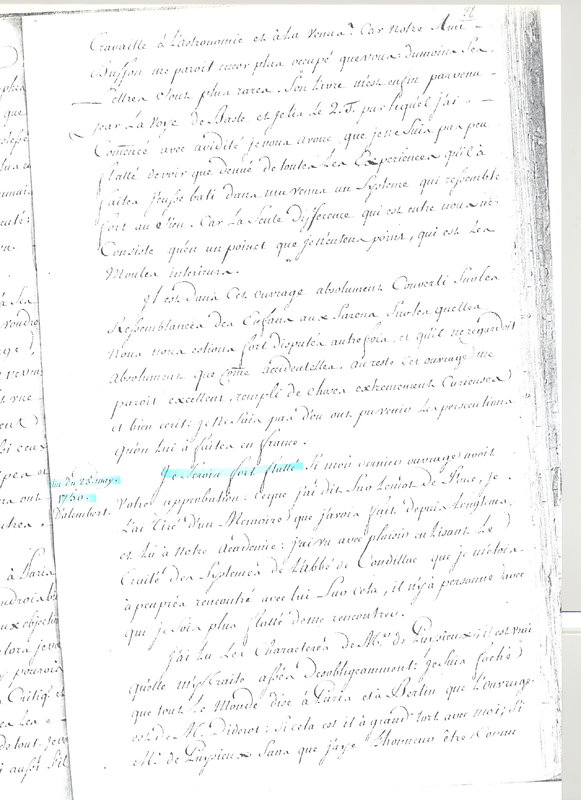 76
travaille à l'astronomie et à la Venus. Car notre Ami
Buffon me paroit encor plus occupé que vous, dumoins ses
lettres sont plus rares. Son livre m'est enfin parvenu
par la voye de Basle et jolis le 2. T. par lequel j'ai
Comencé avec avidité je vous avoue que je ne suis pas peu
flatté de voir que denué de toutes les Experiences qu'il à
faites j'eusse bati dans ma venus un Systeme qui ressemble
fort au Sien. Car la Seule Difference qui est entre nous ne
Consiste qu'en un poinct que je n'entens point, qui est les
Moules interieurs.
Il est dans Cet ouvrage absolument Converti Sur les
Ressemblances des Enfans aux Parens Sur les quelles
Nous nous estions fort disputés autrefois, et qu'il ne regardoit
absolument que come accidentelles. au reste Cet ouvrage me
paroit excellent, rempli de choses extremement Curieuses
et bien ecrit: je ne sais pas d'ou ont pu venir les persecutions
qu'on lui à faites en france.
du 25 may.
1750.
D'alembert.
Je Serois fort flatté Si mon dernier ouvrage avoit
Votre approbation: ce que j'ai dit Sur le mot de Force, je
l'ai tiré d'un Memoire que j'avois fait depuis longtems
et lû à notre Academie: j'ai vu avec plaisir en lisant le
Traité des Systemes de l'Abbé de Condillac que je m'étois
à peu près rencontré avec lui Sur cela, il n'y a personne avec
qui je sois plus flatté de me rencontrer.
J'ai lu Les Characteres de Me. de Puysieux: il est vrai
qu'elle m'y traite assés desobligeamment: je suis faché
que tout le Monde dise à Paris et à Berlin que l'ouvrage
est de Mr. Diderot: Si cela est il à grand tort avec moi, Si
Me. de Puysieux Sans que j'aye l'honneur d'être Connu